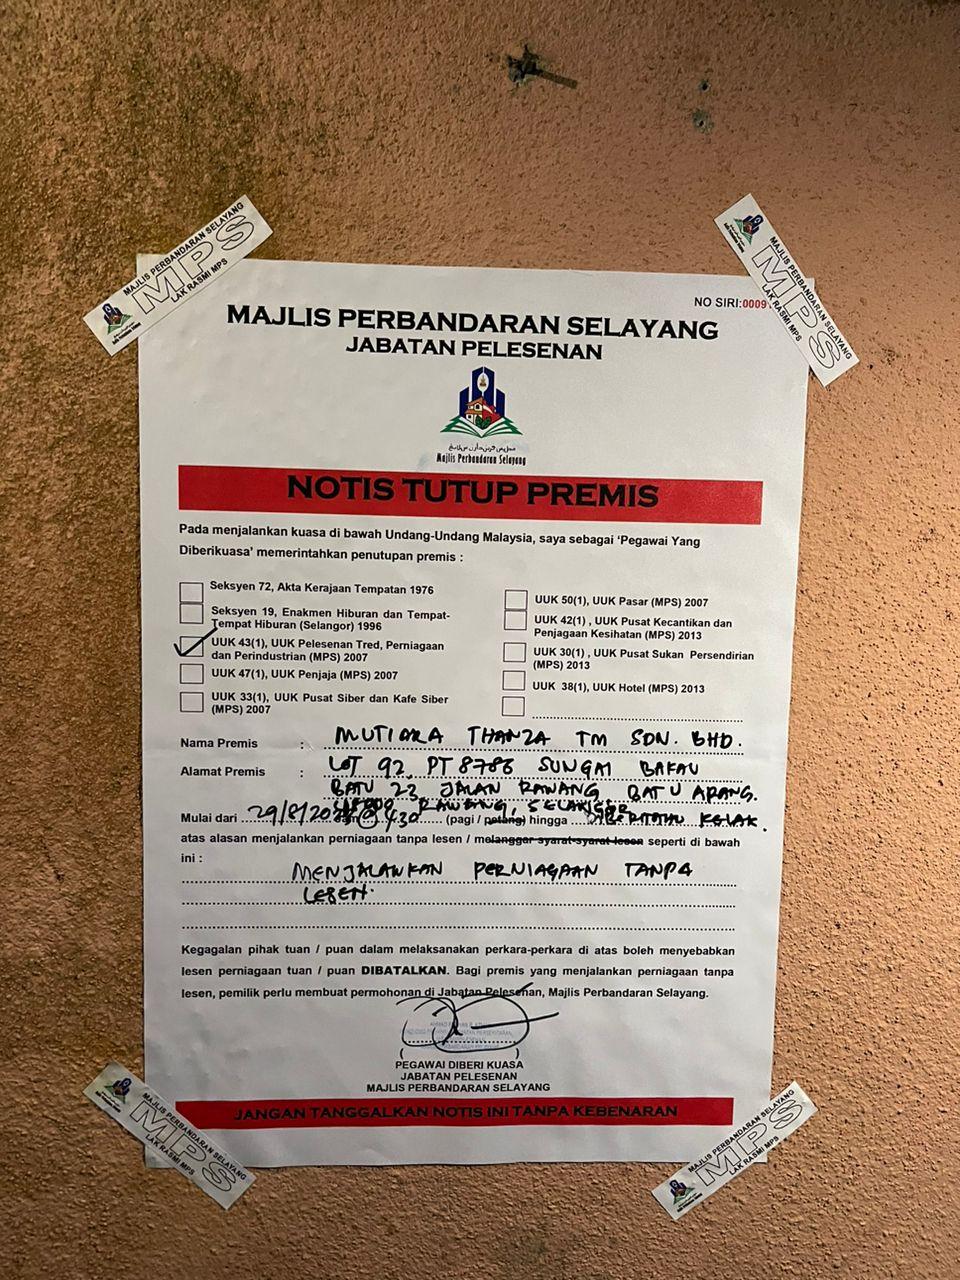 MAJLIS PERBANDARAN SELAYANG
MPS
LAK RASMI MPS
MAJLIS PERBANDARAN SELAYANG
MPS
LAK RASMI MPS
NO SIRI:0009
MAJLIS PERBANDARAN SELAYANG
JABATAN PELESENAN
Majlis Perbandaran Selayang
NOTIS TUTUP PREMIS
Pada menjalankan kuasa di bawah Undang-Undang Malaysia, saya sebagai 'Pegawai Yang
Diberikuasa' memerintahkan penutupan premis :
Seksyen 72, Akta Kerajaan Tempatan 1976
Seksyen 19, Enakmen Hiburan dan Tempat-
Tempat Hiburan (Selangor) 1996
UUK 43(1), UUK Pelesenan Tred, Perniagaan
dan Perindustrian (MPS) 2007
UUK 47(1), UUK Penjaja (MPS) 2007
UUK 33(1), UUK Pusat Siber dan Kafe Siber
(MPS) 2007
UUK 50(1), UUK Pasar (MPS) 2007
UUK 42(1) , UUK Pusat Kecantikan dan
Penjagaan Kesihatan (MPS) 2013
UUK 30(1) , UUK Pusat Sukan Persendirian
(MPS) 2013
UUK 38(1), UUK Hotel (MPS) 2013
Nama Premis : MUTIARA THANZA TM SDN. BHD.
Alamat Premis : LOT 92, PT 8786 SUNGAI BAKAU
BATU 23, JALAN RAWANG, BATU ARANG.
RAWANG, SELANGOR
Mulai dari 29/8/ @ 430 (pagi / petang) hingga KELAK.
atas alasan menjalankan perniagaan tanpa lesen / melanggar syarat-syarat lesen seperti di bawah
ini :
MENJALANKAN PERNIAGAAN TANPA
LESEN.
Kegagalan pihak tuan / puan dalam melaksanakan perkara-perkara di atas boleh menyebabkan
lesen perniagaan tuan / puan DIBATALKAN. Bagi premis yang menjalankan perniagaan tanpa
lesen, pemilik perlu membuat permohonan di Jabatan Pelesenan, Majlis Perbandaran Selayang.
PEGAWAI DIBERI KUASA
JABATAN PELESENAN
MAJLIS PERBANDARAN SELAYANG
JANGAN TANGGALKAN NOTIS INI TANPA KEBENARAN
MAJLIS PERBANDARAN SELAYANG
MPS
LAK RASMI MPS
MAJLIS PERBANDARAN SELAYANG
MPS
LAK RASMI MPS